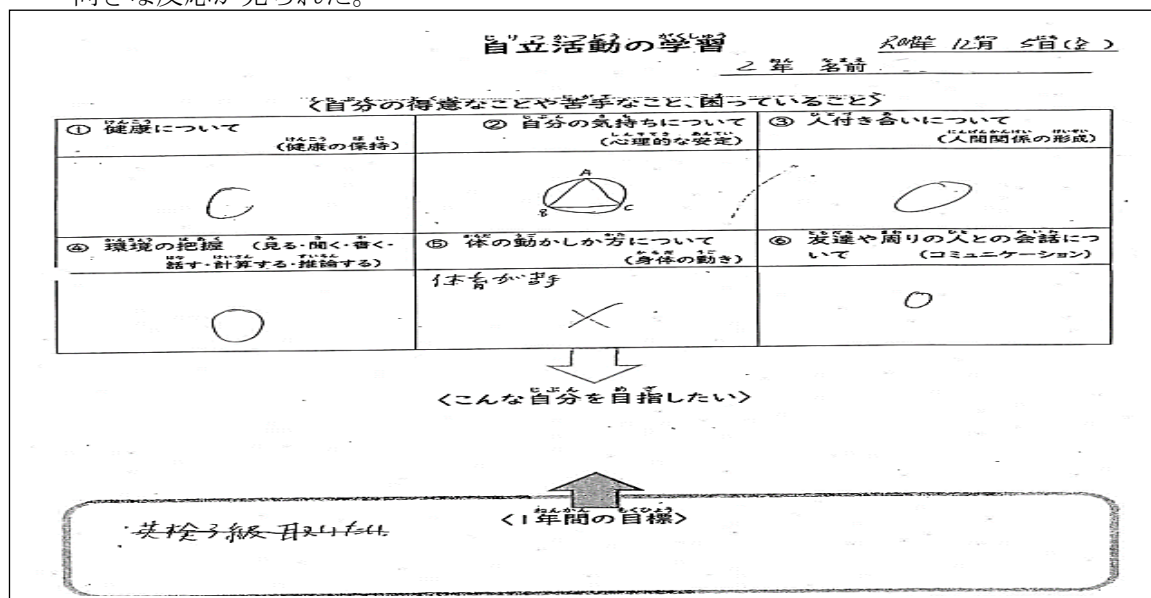 向きな反応が見られた。
自立活動の学習
12月 5日(金)
2年 名前
〈自分の得意なことや苦手なこと、困っていること〉
① 健康について
(健康の保持)
② 自分の気持ちについて
(心理的な安定)
③ 人付き合いについて
(人間関係の形成)
A
B C
④ 環境の把握 (見る・聞く・書く・
話す・計算する・推論する)
⑤ 体の動かしか方について
(身体の動き)
⑥ 友達や周りの人との会話につ
いて (コミュニケーション)
体育が苦手
〈こんな自分を目指したい〉
〈1年間の目標〉
英検3級取りたい